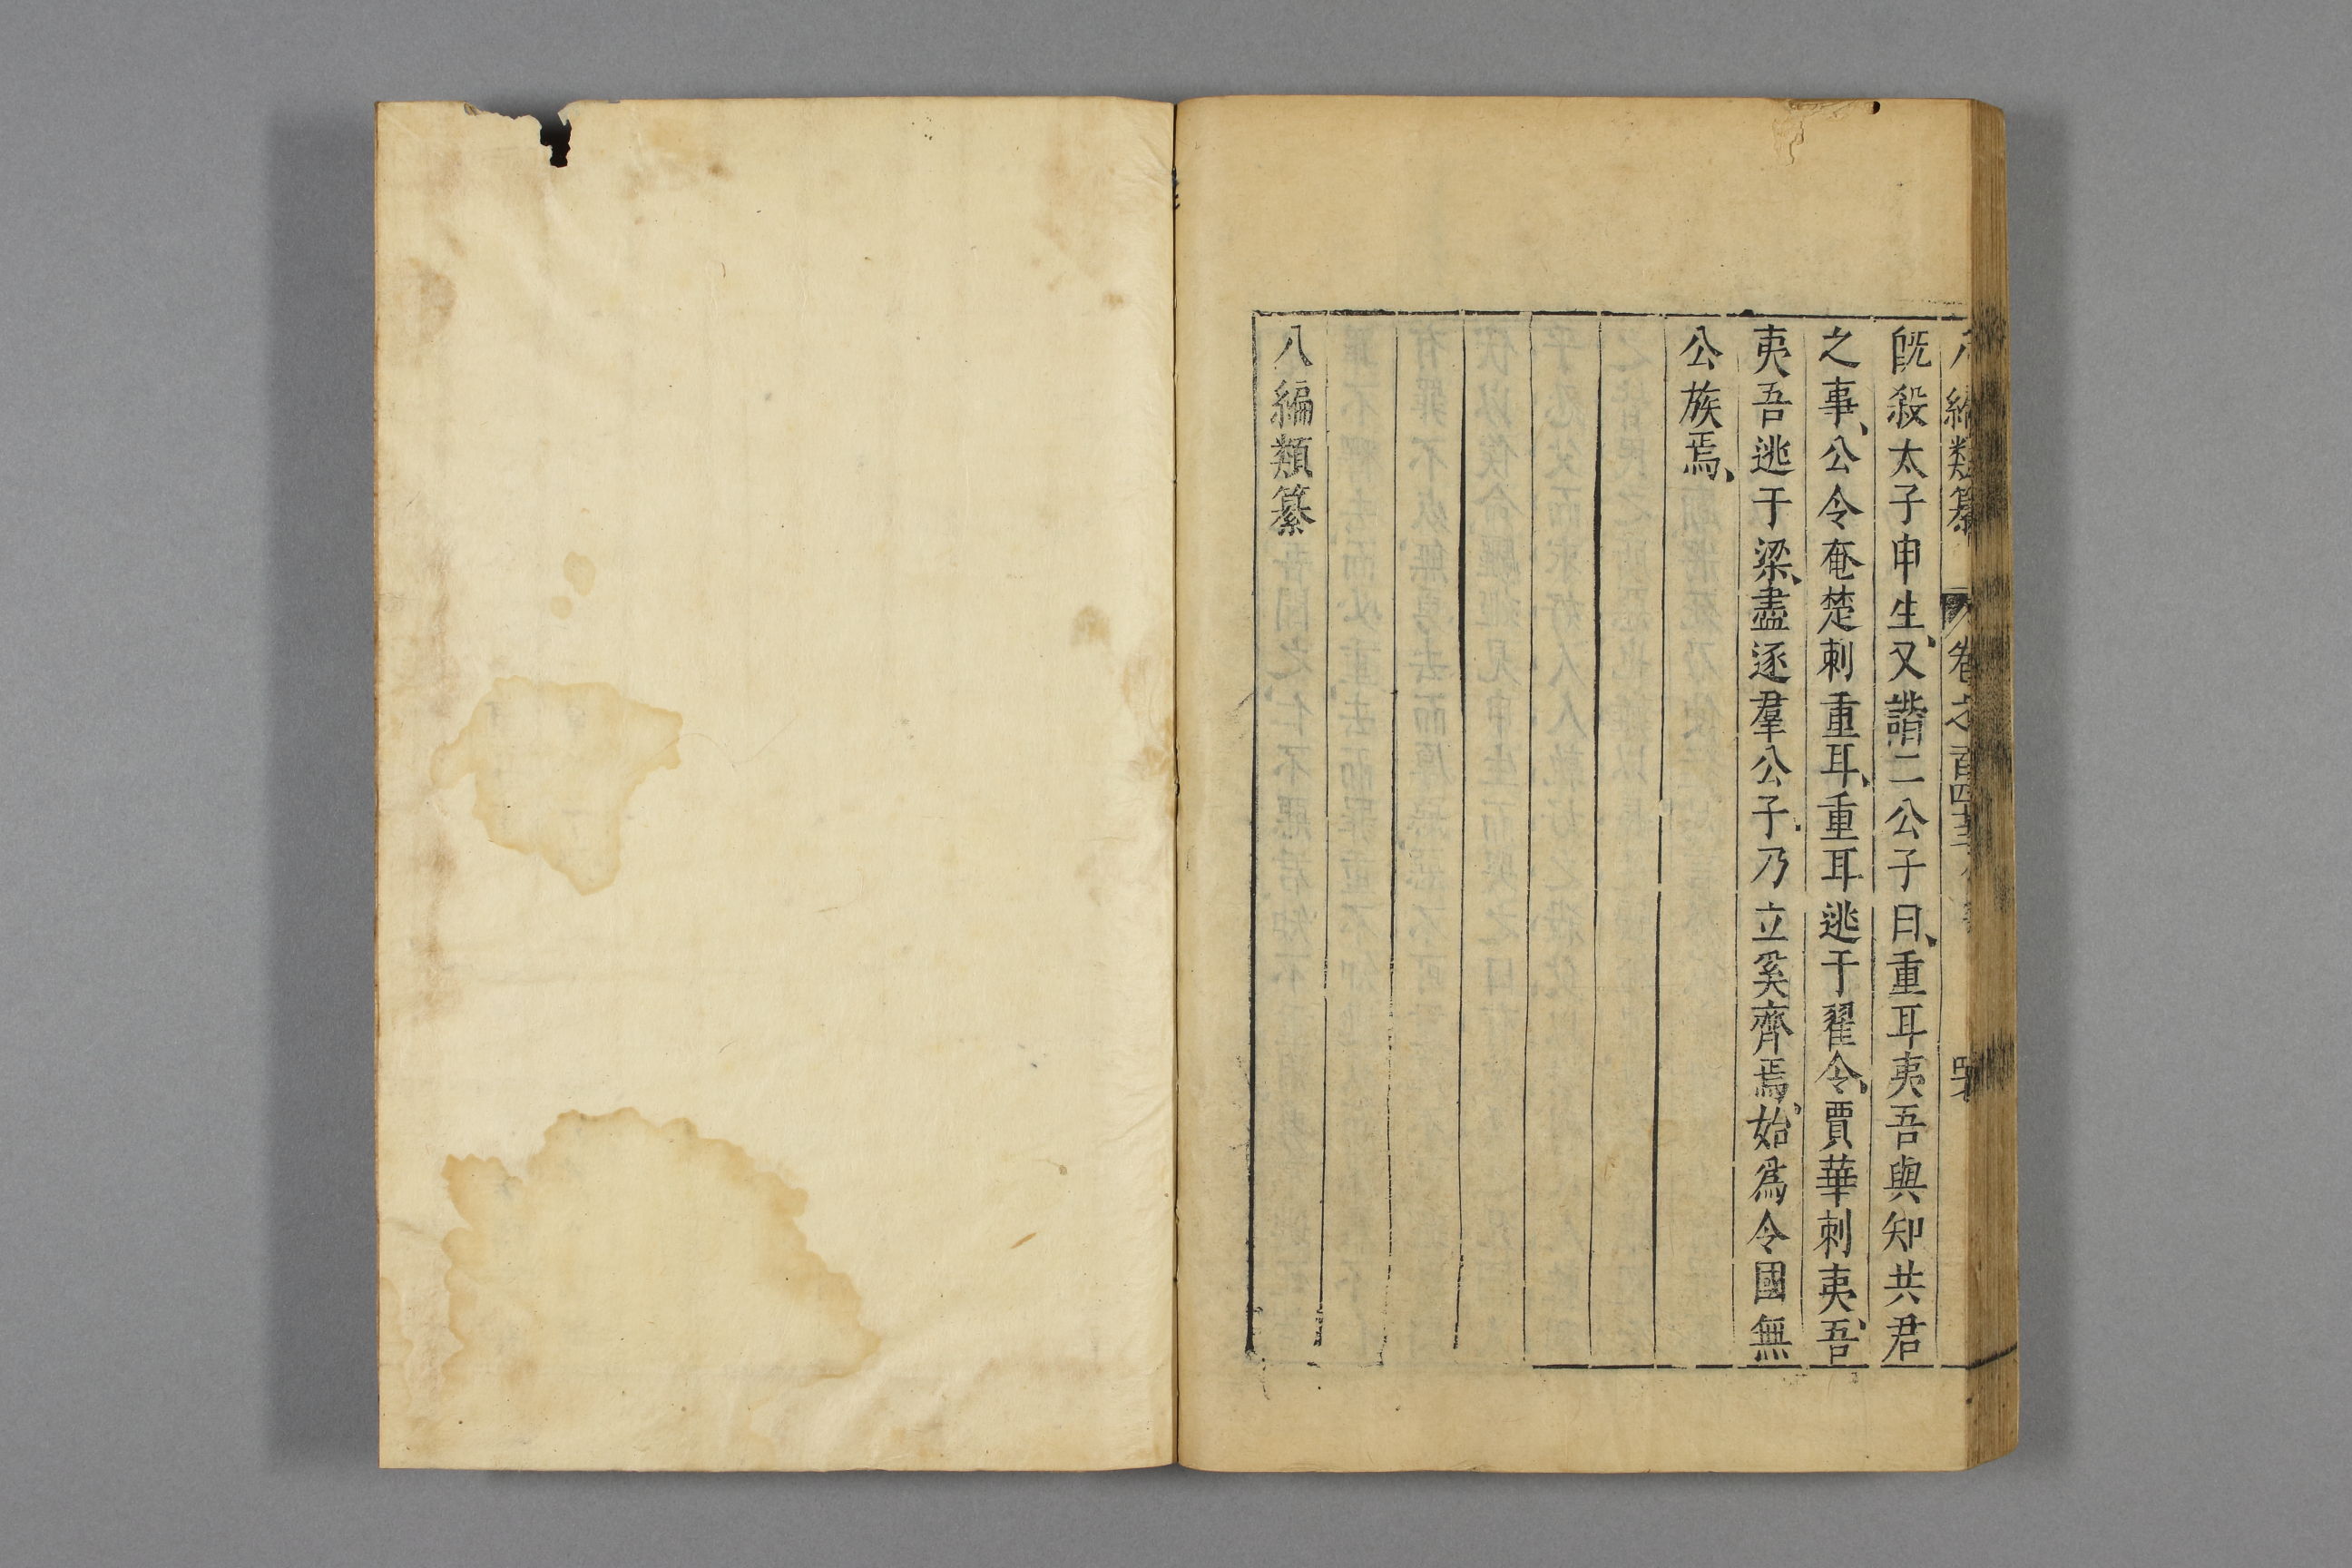 八編類纂 卷之百四十
旣殺太子申生、又譖二公子曰、重耳夷吾與知共君
之事、公令奄楚刺重耳、重耳逃于翟、令賈華刺夷吾、
夷吾逃于梁、盡逐羣公子、乃立奚齊焉、始爲令國無
公族焉、
八編類纂